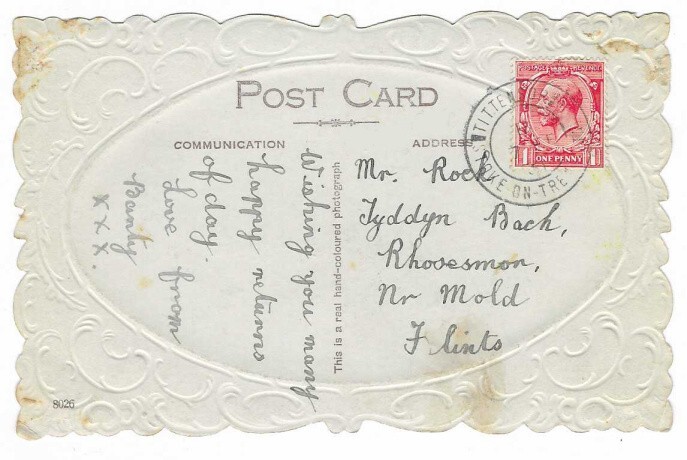 POST CARD
COMMUNICATION
ADDRESS
POSTAGE REVENUE
1 ONE PENNY 1
TITTEN
STOKE-ON-TRE
Wishing you many
happy returns
of day.
Love from
Banty
x x x.
This is a real hand-coloured photograph
Mr. Rock
Tyddyn Bach,
Rhosesmor,
Nr Mold
Flints
8026